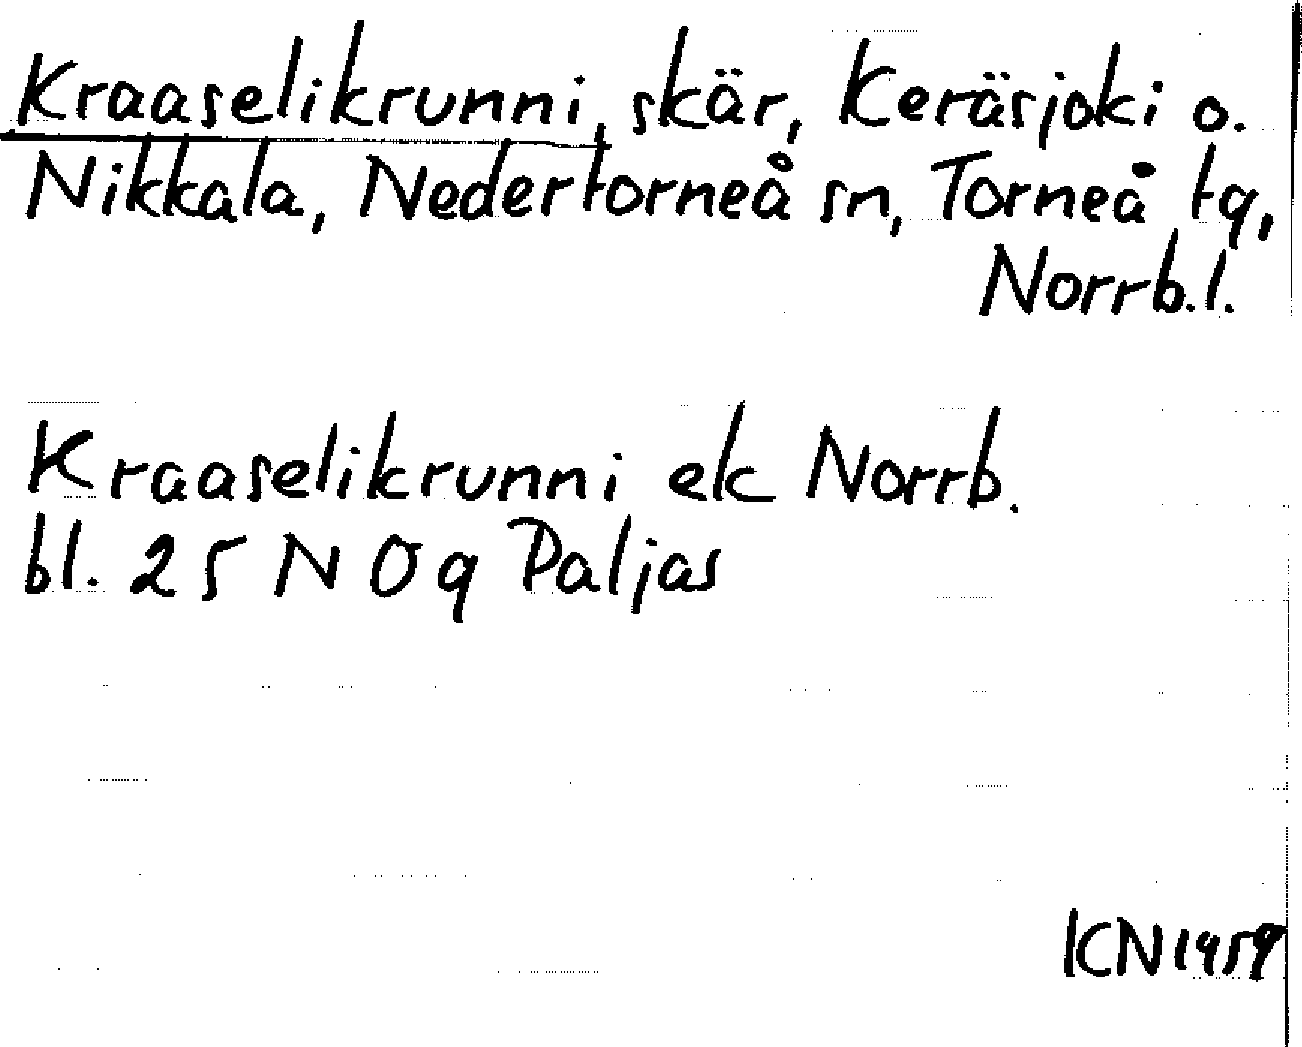 Kraaselikrunni, skär, Keräsjoki o.
Nikkala, Nedertorneå sn, Torneå tg,
Norrb.l.
Kraaselikrunni ek Norrb.
bl. 25 N Og Paljas
KCN 1959